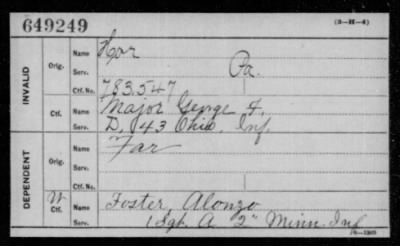 649249
(3-H-4)
INVALID
Orig.
Name Hor
Serv. Pa.
Ctf. No. 783.547
Ctf.
Name Major George F.
Serv. D. 43 Ohio. Inf.
DEPENDENT
Orig.
Name Far
Serv.
Ctf. No.
W
Ctf.
Name Foster, Alonzo
Serv. 1 Sgt. A 2" Minn. Inf